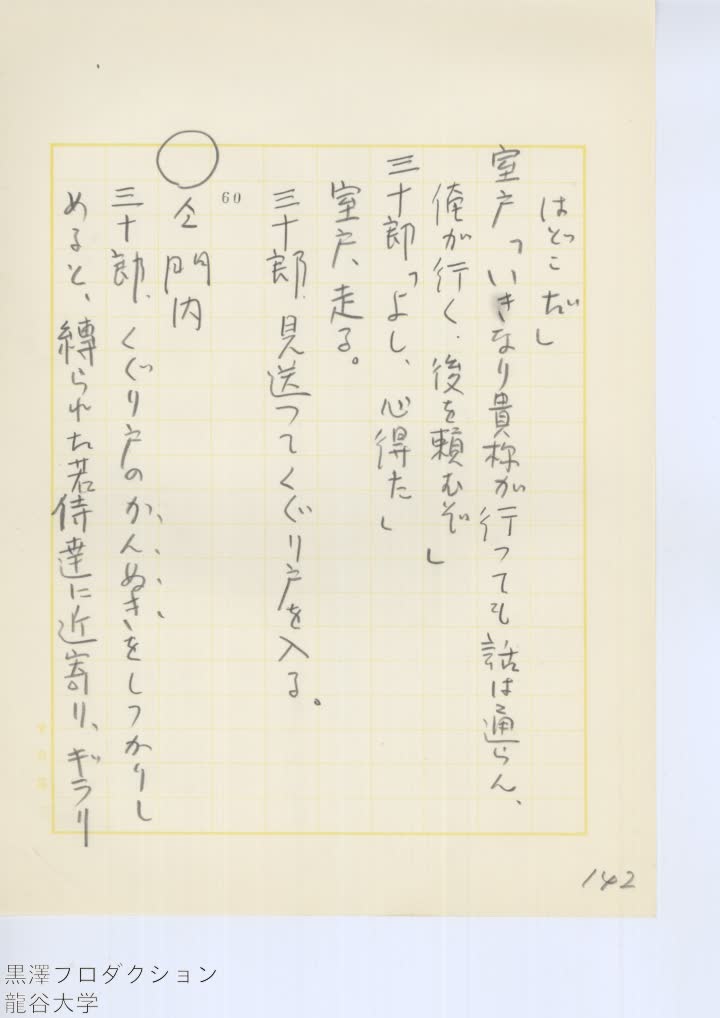 はどこだ」
室戸「いきなり貴様が行つても話は通らん、
俺が行く、後を頼むぞ」
三十郎「よし、心得た」
室戸、走る。
三十郎、見送つてくぐり戸を入る。
60
○仝 門内
三十郎、くぐり戸のかんぬきをしつかりし
めると、縛られた若侍達に近寄り、ギラリ
142
黒澤プロダクション
龍谷大学